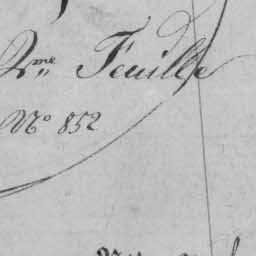 2me Feuille
No 852